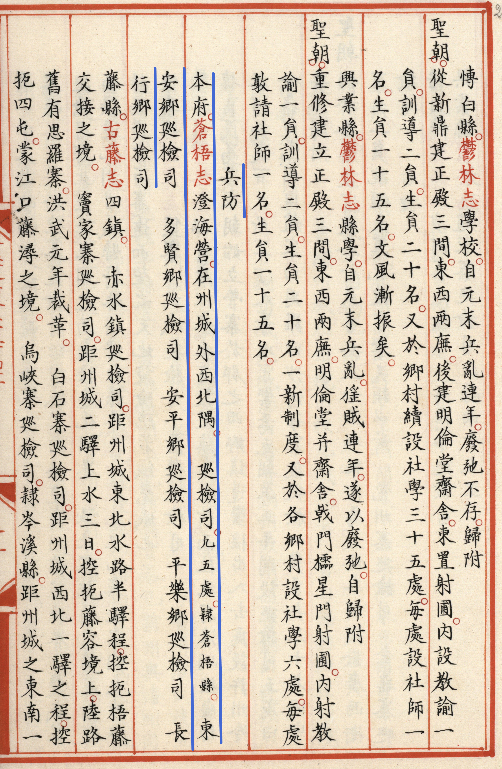 博白縣鬱林志學校自元末兵亂連年廢弛不存歸附
聖朝從新鼎建正殿三間東西兩廡後建明倫堂齋舍東置射圃內設教諭一
員訓導二員生員二十名又於鄉村續設社學三十五處每處設社師一
名生員一十五名文風漸振矣
興業縣鬱林志縣學自元末兵亂徭賊連年遂以廢弛自歸附
聖朝重修建立正殿三間東西兩廡明倫堂并齋舍戟門櫺星門射圃內射教
諭一員訓導二員生員二十名一新制度又於各鄉村設社學六處每處
敦請社師一名生員一十五名
兵防
本府蒼梧志澄海營在州城外西北隅 廵檢司九五處隸蒼梧縣 東
安鄉廵檢司 多賢鄉廵檢司 安平鄉廵檢司 平樂鄉廵檢司 長
行鄉廵檢司
藤縣古藤志四鎮 赤水鎮廵檢司距州城東北水路半驛程控扼梧藤
交接之境 竇家寨廵檢司距州城二驛上水三日控扼藤容境上陸路
舊有思羅寨洪武元年裁革 白石寨廵檢司距州城西北一驛之程控
扼四屯蒙江口藤潯之境 烏峽寨廵檢司隸岑溪縣距州城之東南一
2